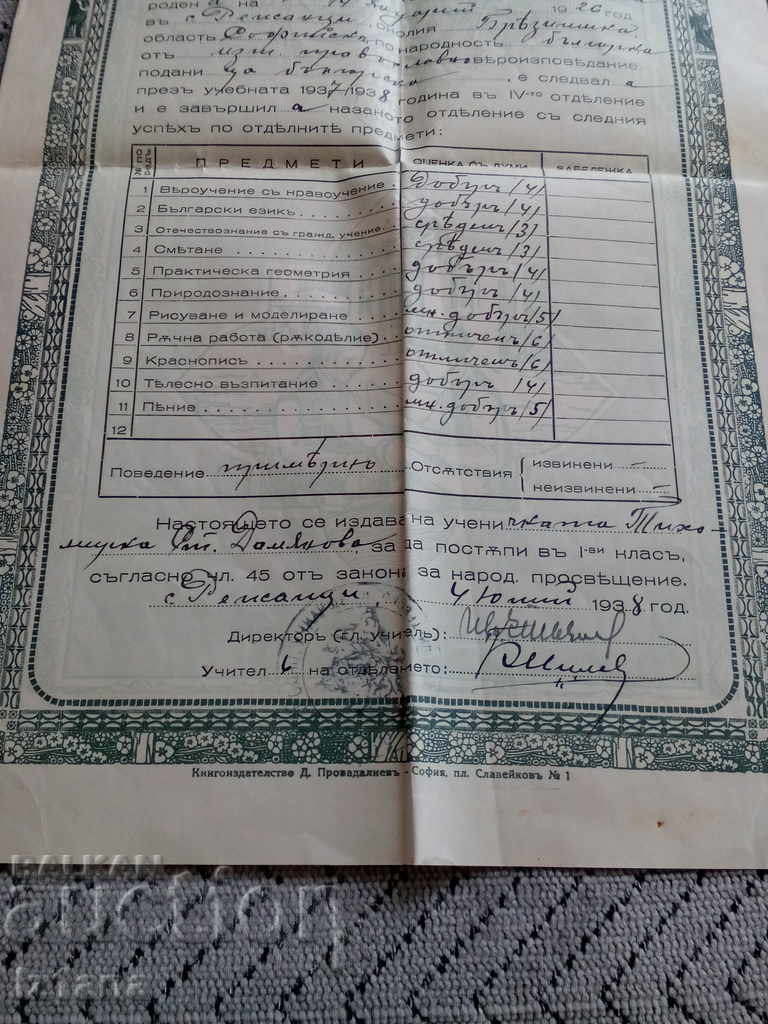 роден а на 14 Януарий 1926 год
въ с. Ренсанци, околия Брѣзнишка
область Софийска по народность българка
отъ изт. православно вѣроизповѣдание
подани ца българска, е следвал а
презъ учебната 1937/1938 година въ IV-то отдѣление
и е завършил а казаното отдѣление съ следния
успѣхъ по отдѣлните предмети:
№ по редъ ПРЕДМЕТИ ОЦЕНКА СЪ ДУМИ ЗАБЕЛЕЖКА
1 Вѣроучение съ нравоучение добъръ /4/
2 Български езикъ добъръ /4/
3 Отечествознание съ гражд. учение срѣденъ /3/
4 Смѣтане срѣденъ /3/
5 Практическа геометрия добъръ /4/
6 Природознание добъръ /4/
7 Рисуване и моделиране мн. добъръ /5/
8 Рѫчна работа (рѫкодѣлие) отличенъ /6/
9 Краснописъ отличенъ /6/
10 Тѣлесно възпитание добъръ /4/
11 Пѣние мн. добъръ /5/
12
Поведение примѣрно Отсѫтствия извинени –
неизвинени –
Настоящето се издава на учени чката Тихо-
мирка Ст. Дамянова, за да постѫпи въ I-ви класъ,
съгласно чл. 45 отъ закона за народ. просвѣщение.
с. Ренсанци, 4 Юлий 1938 год.
Директоръ (гл. учитель):
Учител ь на отдѣлението:
Книгоиздателство Д. Провадалиевъ - София, пл. Славейковъ № 1
BALKAN
auction
Iziana